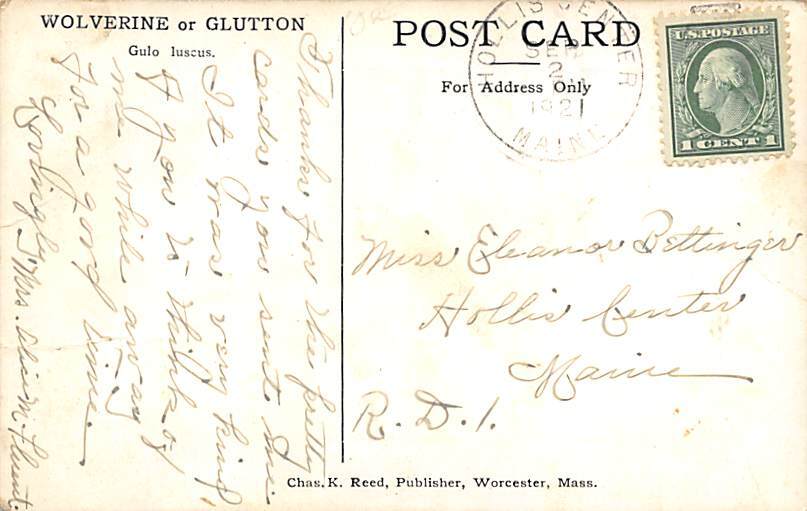 WOLVERINE or GLUTTON
Gulo luscus.
Thanks for the pretty
cards you sent me
It was very kind
of you to think of
me while away
for a good time.
Lovingly
Mrs. Alice M.
POST CARD
For Address Only
HOLLIS CENTER
SEP
2
1921
MAINE
U.S. POSTAGE
1 CENT 1
Miss Eleanor Bettinger
Hollis Center
Maine
R. D. 1.
Chas. K. Reed, Publisher, Worcester, Mass.